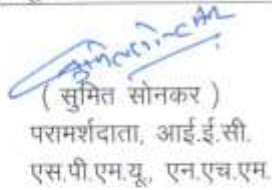 ( सुमित सोनकर )
परामर्शदाता, आई.ई.सी.
एस.पी.एम.यू., एन.एच.एम.